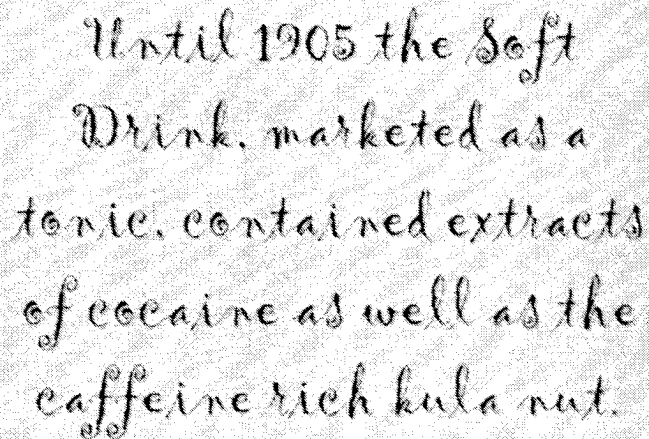 Until 1905 the Soft
Drink, marketed as a
tonic, contained extracts
of cocaine as well as the
caffeine rich kula nut.